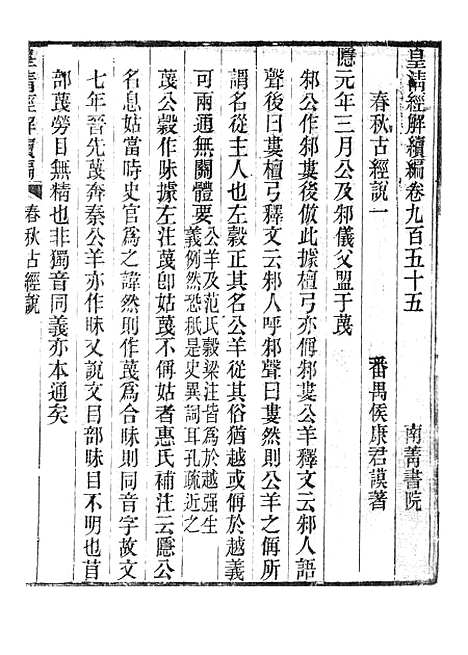 皇清經解續編卷九百五十五　南菁書院
春秋古經說一　番禺侯康君謨著
隱元年三月公及邾儀父盟于蔑
邾公作邾婁後倣此據檀弓亦偁邾婁公羊釋文云邾人語
聲後曰婁檀弓釋文云邾人呼邾聲曰婁然則公羊之偁所
謂名從主人也左穀正其名公羊從其俗猶越或偁於越義
可兩通無關體要公羊及范氏穀梁注皆爲於越强生
義例然恐秖是史異詞耳孔疏近之
蔑公穀作昧據左注蔑卽姑蔑不偁姑者惠氏補注云隱公
名息姑當時史官爲之諱然則作蔑爲合昧則同音字故文
七年晉先蔑奔秦公羊亦作昧又說文目部昧目不明也苜
部蔑勞目無精也非獨音同義亦本通矣
皇清經解續編　春秋古經說